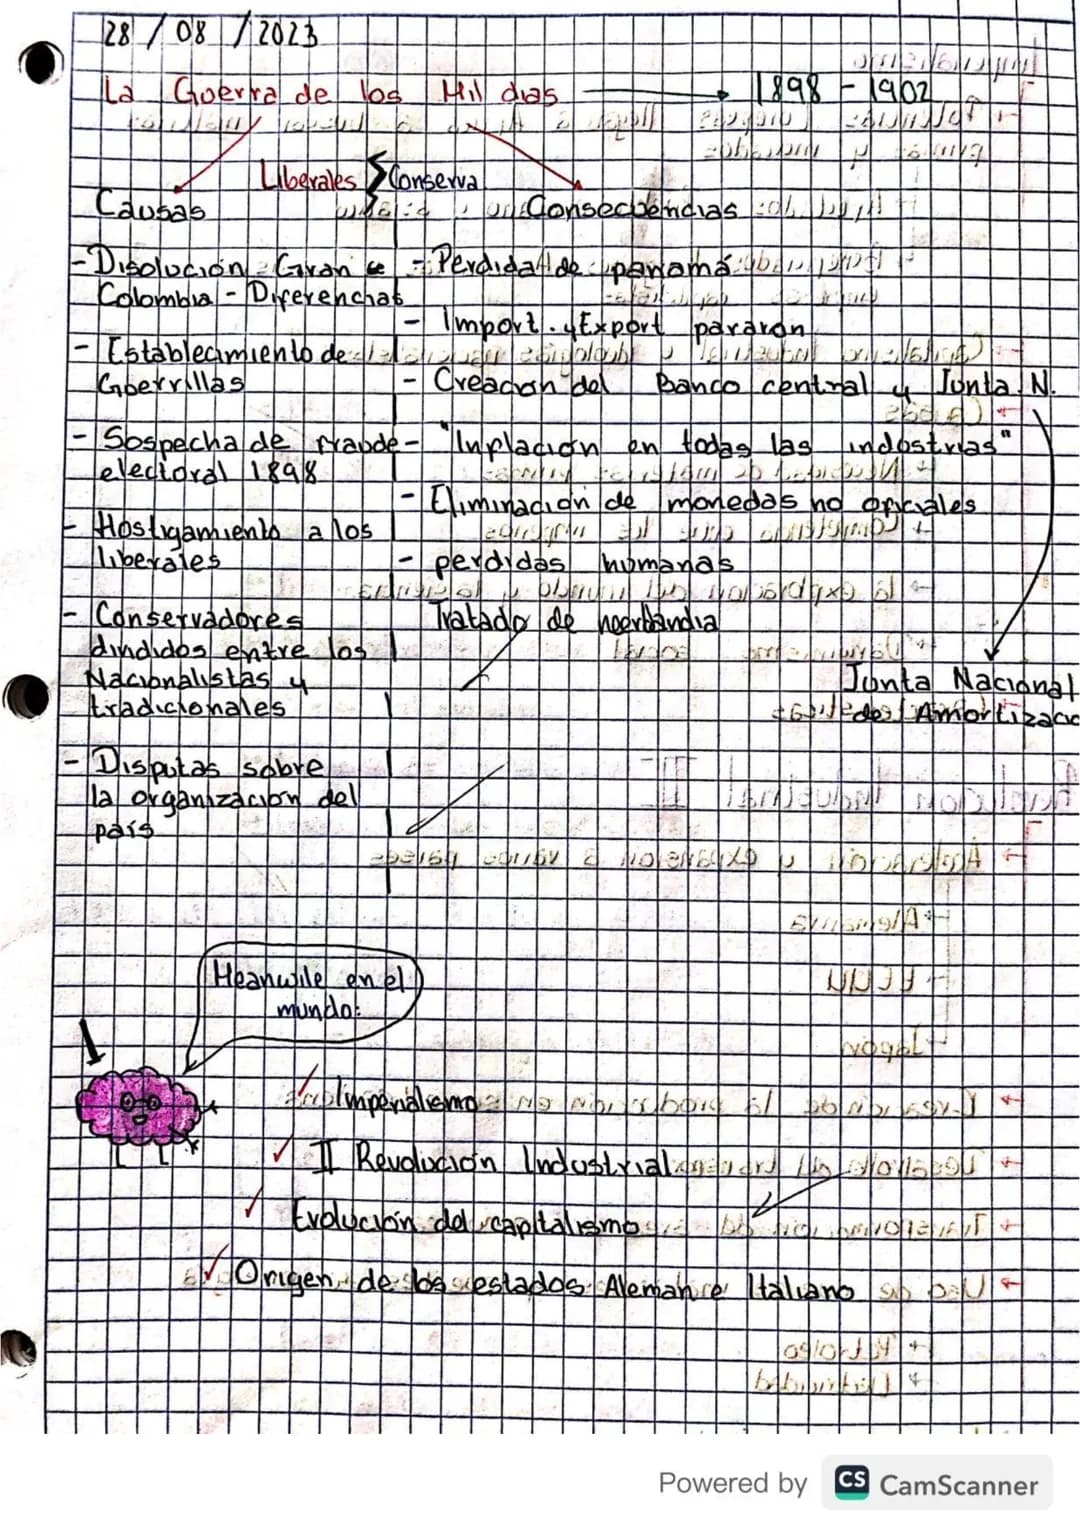 28/08/2023
La Guerra de los Mil dias → 1898 - 1902
Liberales } Conserva
Causas
- Disolución Gran
Colombia - Diferencias
- Establecimiento de
Guerrillas
- Sospecha de fraude
electoral 1898
- Hostigamiento a los
liberales
- Conservadores
divididos entre los
Nacionalistas y
tradicionales
- Disputas sobre
la organización del
país
Consecuencias
- Perdida de panamá
- Import. y Export pararon
- Creacion del Banco central y Junta N.
- "Inflación en todas las industrias"
- Eliminación de monedas no oficiales
- perdidas humanas
Tratado de neerlandia
Junta Nacional
de Amortizacio
Meanwile en el
mundo:
✓ Imperialismo
✓ II Revolución Industrial
✓ Evolución del capitalismo
✓ Origen de los estados Aleman e Italiano
Powered by CS CamScanner